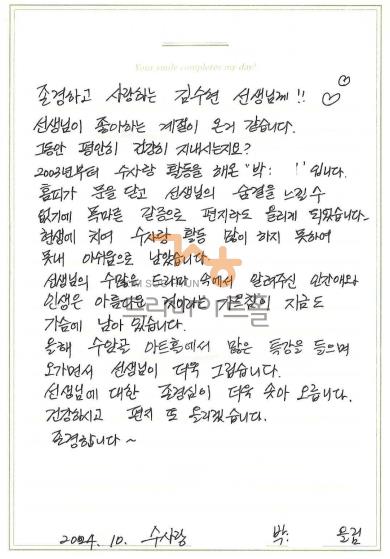 Your smile completes my day!
존경하고 사랑하는 김수현 선생님께!!
선생님이 좋아하는 계절이 온거 같습니다.
그동안 평안히 건강히 지내셨는지요?
2003년부터 수사랑 활동을 해온 "박: !" 입니다.
홈피가 문을 닫고 선생님의 숨결을 느낄 수
없기에 목마른 갈증으로 편지라도 올리게 되었습니다~
현생에 치여 수사랑 활동 많이 하지 못하여
못내 아쉬움으로 남았습니다.
선생님의 수많은 드라마 속에서 알려주신 인간애와
인생은 아름다운 것이라는 가르침이 지금도
가슴에 남아 있습니다.
올해 수암골 아트홀에서 많은 특강을 들으며
오가면서 선생님이 더욱 그립습니다.
선생님에 대한 존경심이 더욱 솟아 오릅니다.
건강하시고 편지 또 올리겠습니다.
존경합니다~
2024. 10. 수사랑 박: 올림
KIM SOO HYUN
드라마아트홀